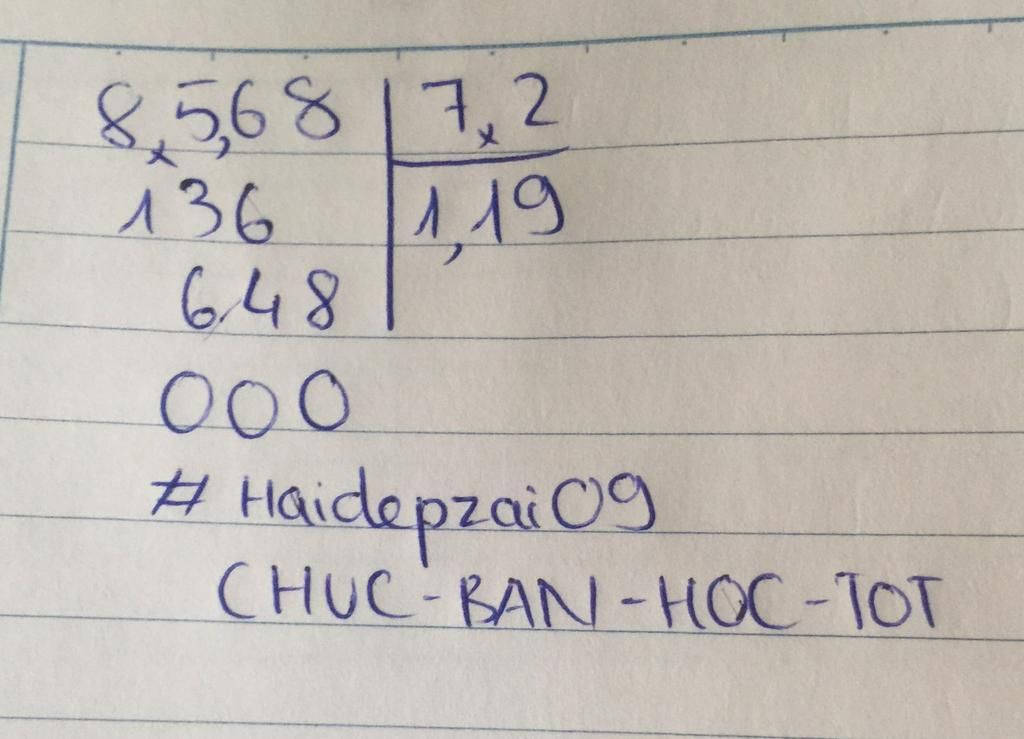 8,5,68 | 7,2
136 | 1,19
648
000
# Haidepzai09
CHUC-BAN-HOC-TOT